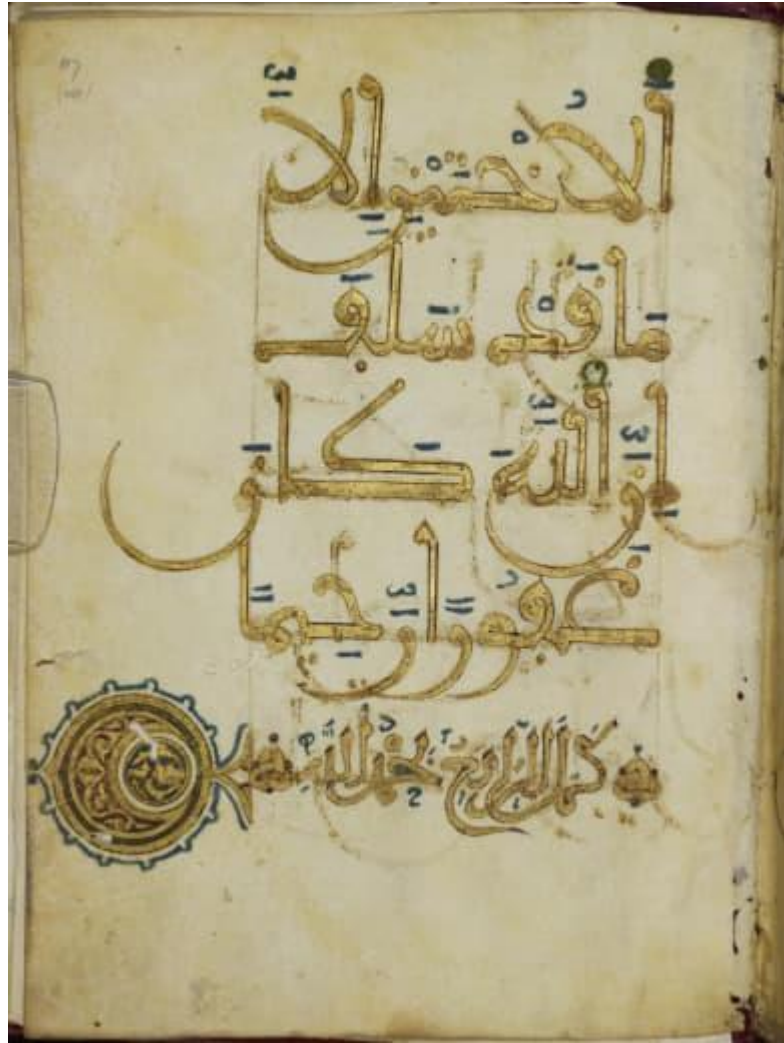 الاختين الا
ما قد سلف
ان الله كان
غفورا رحيما
كمل الرابع بحمد الله